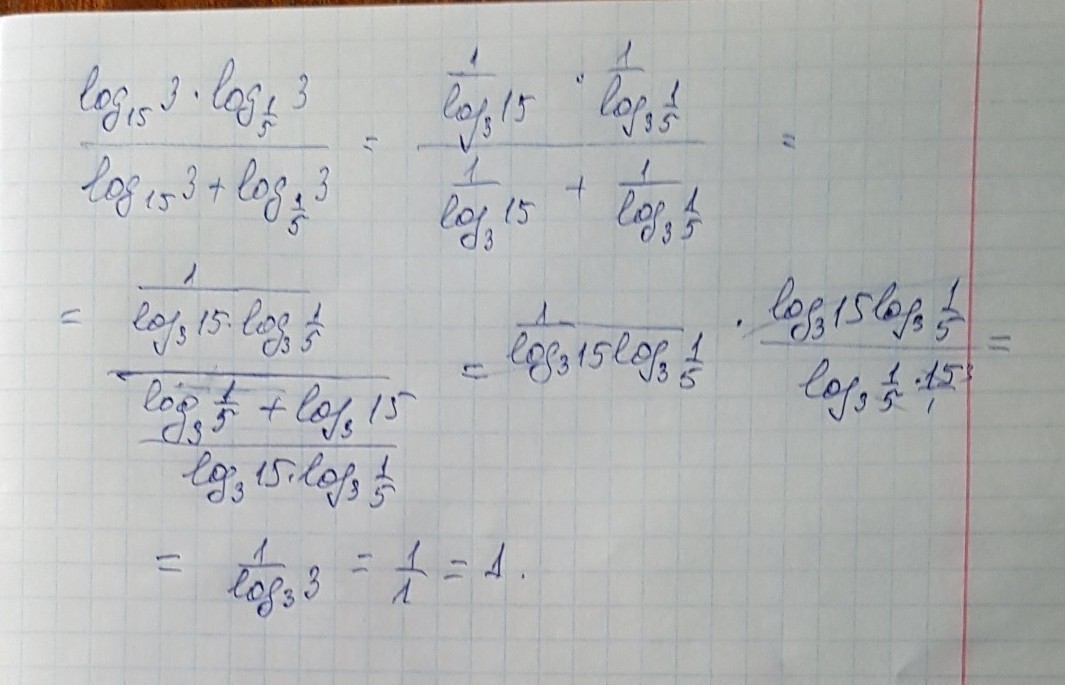 \frac{\log_{15} 3 \cdot \log_{\frac{1}{5}} 3}{\log_{15} 3 + \log_{\frac{1}{5}} 3} = \frac{\frac{1}{\log_3 15} \cdot \frac{1}{\log_3 \frac{1}{5}}}{\frac{1}{\log_3 15} + \frac{1}{\log_3 \frac{1}{5}}} =
= \frac{\frac{1}{\log_3 15 \cdot \log_3 \frac{1}{5}}}{\frac{\log_3 \frac{1}{5} + \log_3 15}{\log_3 15 \cdot \log_3 \frac{1}{5}}} = \frac{1}{\log_3 15 \log_3 \frac{1}{5}} \cdot \frac{\log_3 15 \log_3 \frac{1}{5}}{\log_3 \frac{1}{5} \cdot \frac{15^3}{1}} =
= \frac{1}{\log_3 3} = \frac{1}{1} = 1.